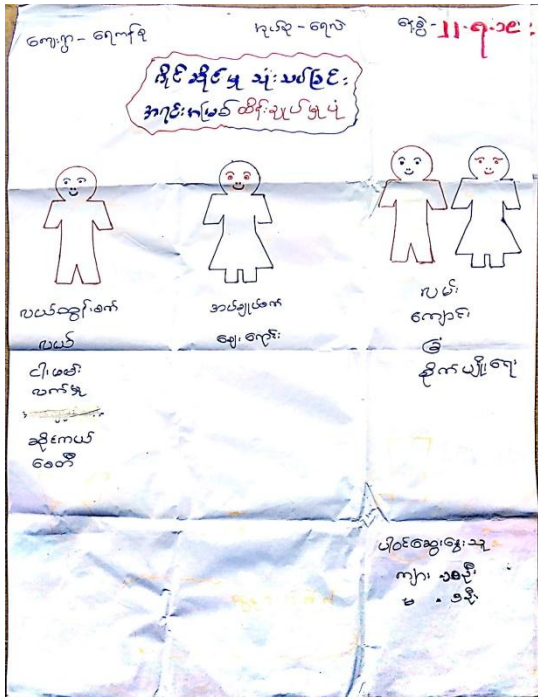 ကျေးရွာ - ရေကန်စု
အုပ်စု - ရေလဲ
နေ့စွဲ - ၂၂-၇-၁၉
ပိုင်ဆိုင်မှု သုံးသပ်ခြင်း
အရင်းအမြစ် ထိန်းချုပ်မှုပုံ
လယ်ထွန်စက်
လယ်
ငါးဖမ်း
လက်မှု
ဆိုင်ကယ်
ဗေတီ
အပ်ချုပ်စက်
ဈေးရောင်း
လမ်း
ကျောင်း
ခြံ
စိုက်ပျိုးရေး
ပါဝင်ဆွေးနွေးသူ
ကျား
မ